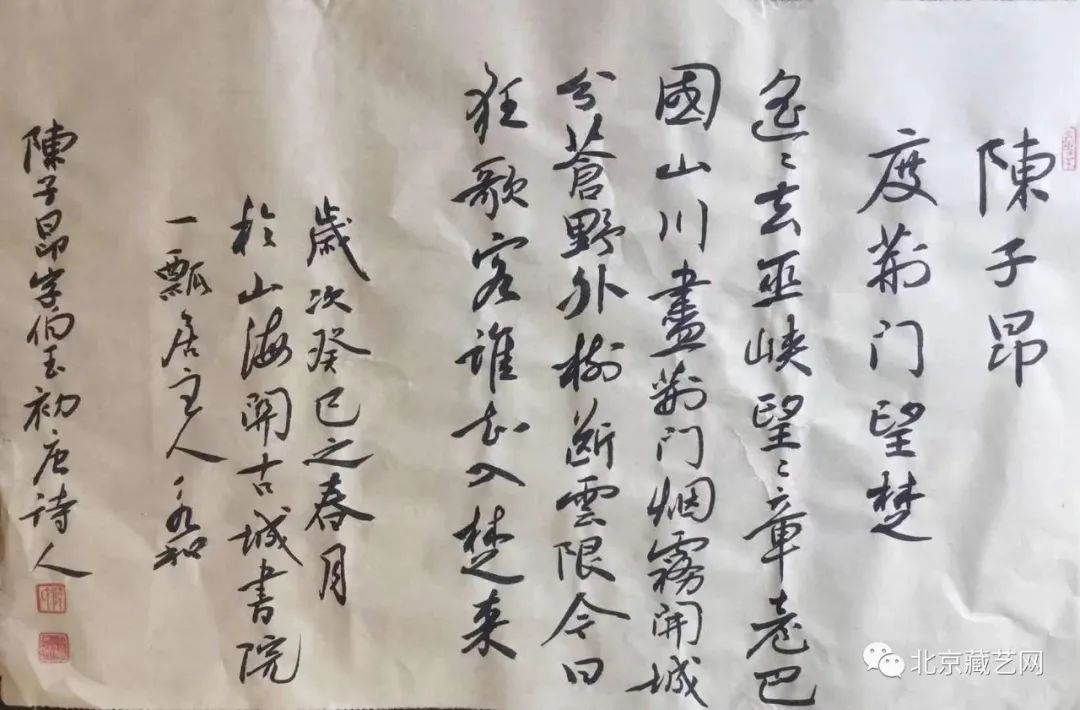 陳子昂
度荆门望楚
遥々去巫峡望々章臺巴
國山川盡荆门烟霧開城
分蒼野外樹斷雲限今日
狂歌客誰知入楚来
歲次癸巳之春月
於山海関古城書院
一瓢居主人
陳子昂字伯玉初唐诗人
北京藏艺网